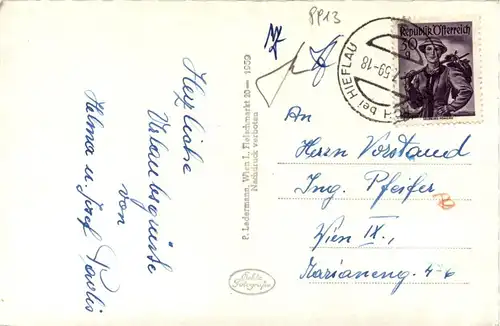 Herzliche
Urlaubsgrüsse
von
Helma u. Josef Pavlis
P. Ledermann, Wien I., Fleischmarkt 20 — 1959
Nachdruck verboten
Echte
Fotografie
PP13
Republik Österreich
30
g
bei HIEFLAU
59-18
An
Herrn Vorstand
Ing. Pfeifer
Wien IX.,
Marianeng. 4-6